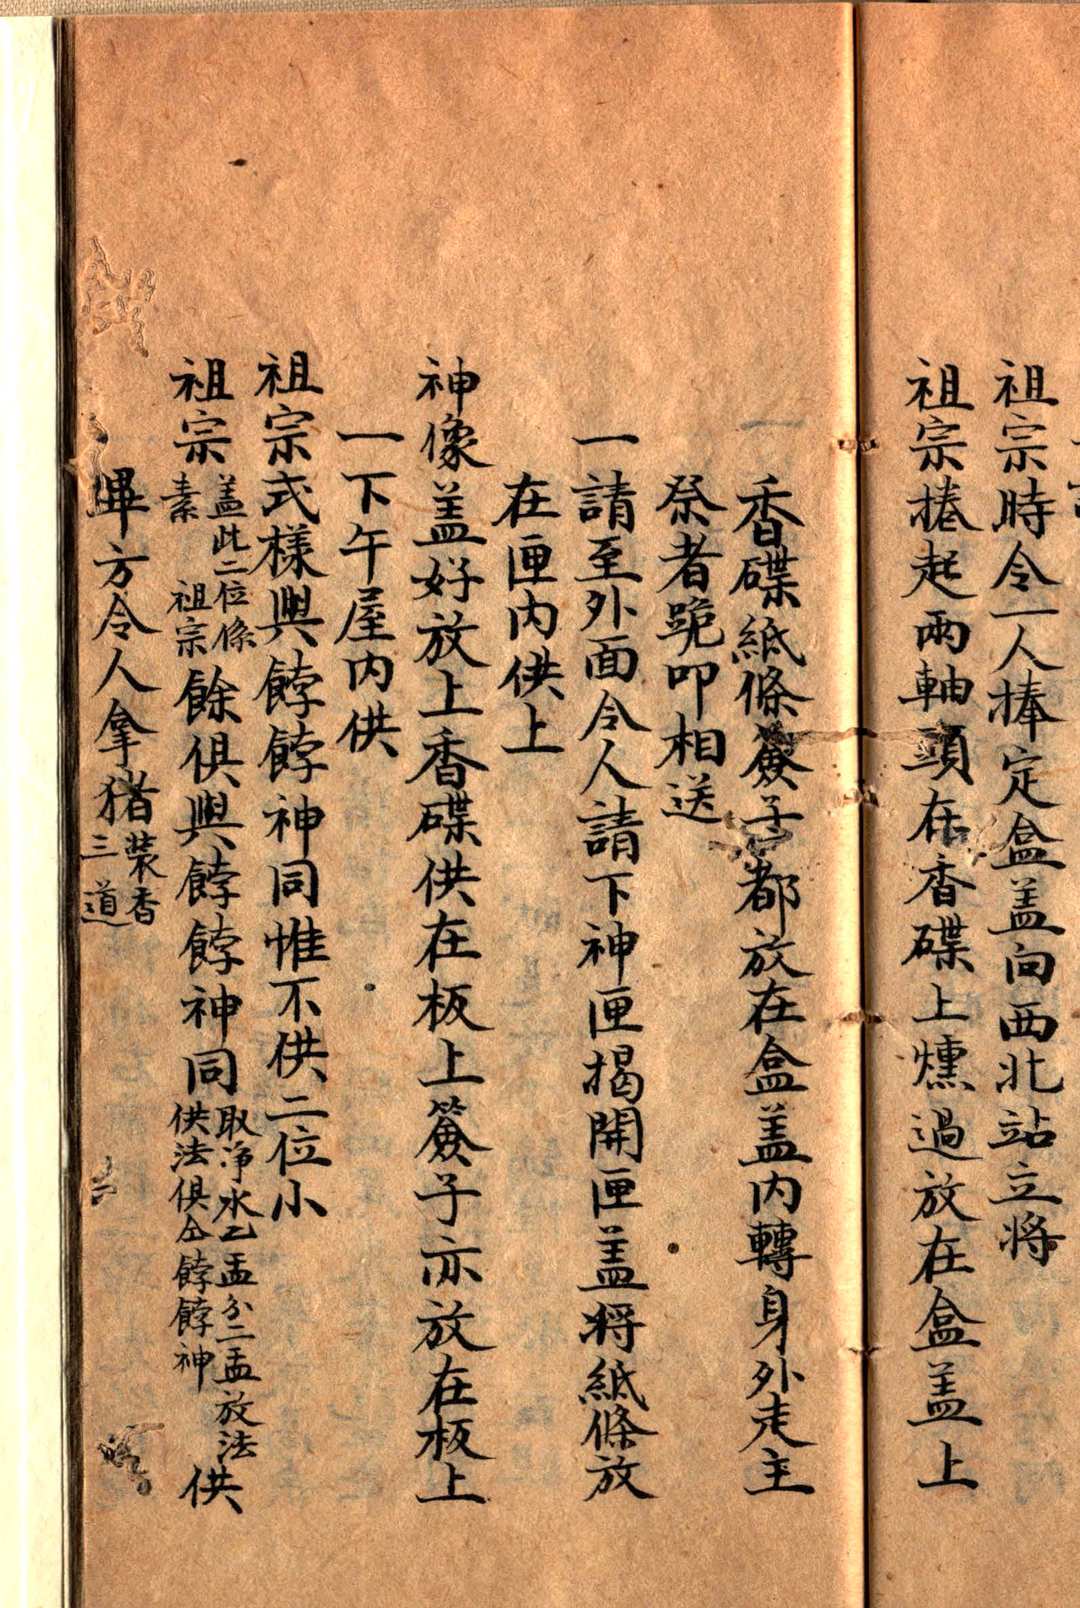 祖宗時令一人捧定盒盖向西北站立將
祖宗捲起兩軸頭在香碟上燻過放在盒盖上
香碟紙條簽子都放在盒盖内轉身外走主
祭者跪叩相送
一請至外面令人請下神匣揭開匣盖將紙條放
在匣内供上
神像盖好放上香碟供在板上簽子亦放在板上
一下午屋内供
祖宗式樣與餑餑神同惟不供二位小
祖宗盖此二位係素祖宗餘俱與餑餑神同取净水乙盂分二盂放法供法俱仝餑餑神供
畢方令人拿猪裝香三道